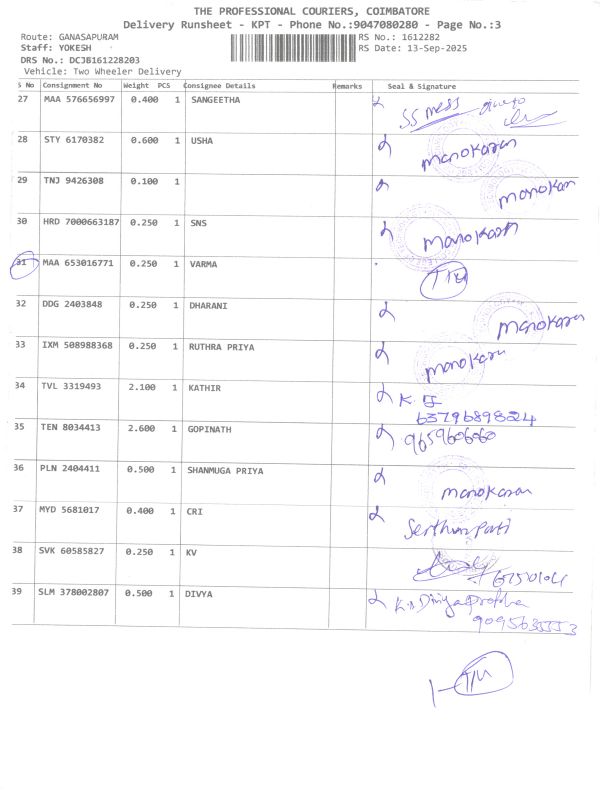 THE PROFESSIONAL COURIERS, COIMBATORE
Delivery Runsheet - KPT - Phone No.:9047080280 - Page No.:3
Route: GANASAPURAM RS No.: 1612282
Staff: YOKESH RS Date: 13-Sep-2025
DRS No.: DCJB161228203
Vehicle: Two Wheeler Delivery
S No Consignment No Weight PCS Consignee Details Remarks Seal & Signature
27 MAA 576656997 0.400 1 SANGEETHA SS mess
28 STY 6170382 0.600 1 USHA manokaran
29 TNJ 9426308 0.100 1 manokaran
30 HRD 7000663187 0.250 1 SNS manokaran
31 MAA 653016771 0.250 1 VARMA
32 DDG 2403848 0.250 1 DHARANI manokaran
33 IXM 508988368 0.250 1 RUTHRA PRIYA manokaran
34 TVL 3319493 2.100 1 KATHIR
6379689824
35 TEN 8034413 2.600 1 GOPINATH
36 PLN 2404411 0.500 1 SHANMUGA PRIYA manokaran
37 MYD 5681017 0.400 1 CRI
38 SVK 60585827 0.250 1 KV
39 SLM 378002807 0.500 1 DIVYA